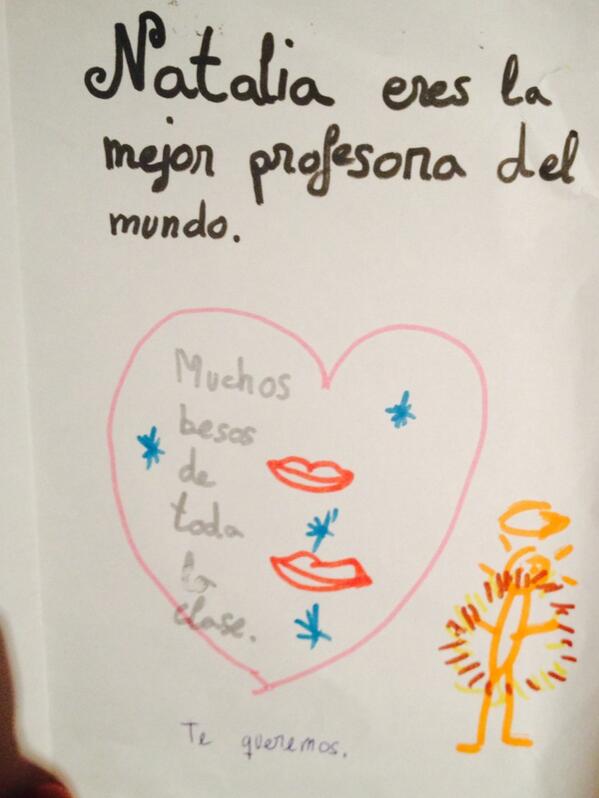 Natalia eres la
mejor profesora del
mundo.
Muchos
besos
de
toda
la
clase.
Te queremos.